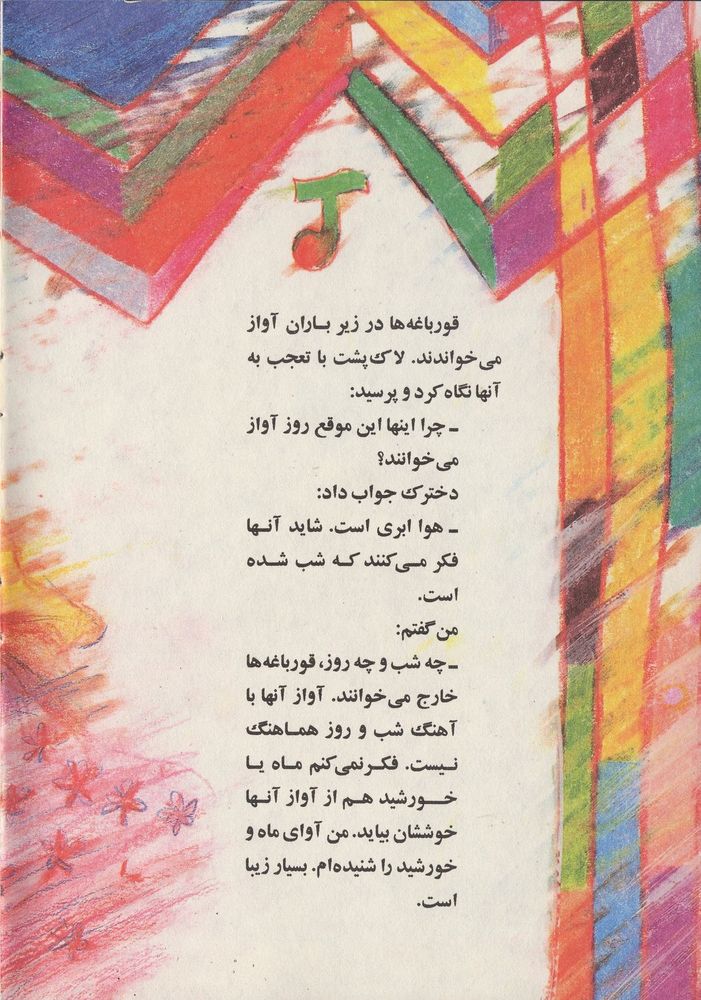 قورباغه‌ها در زیر بـاران آواز
می‌خواندند. لاک‌پشت با تعجب به
آنها نگاه کرد و پرسید:
ـ چرا اینها این موقع روز آواز
می‌خوانند؟
دخترک جواب داد:
ـ هوا ابری است. شاید آنـها
فکر مـی‌کنند کـه شب شـده
است.
من گفتم:
ـ چه شب و چه روز، قورباغه‌ها
خارج می‌خوانند. آواز آنها با
آهنگ شب و روز همـاهنگ
نیـست. فکر نمی‌کنم مـاه یـا
خـورشید هـم از آواز آنـها
خوششان بیاید. من آوای ماه و
خورشید را شنیده‌ام. بسیار زیبا
است.